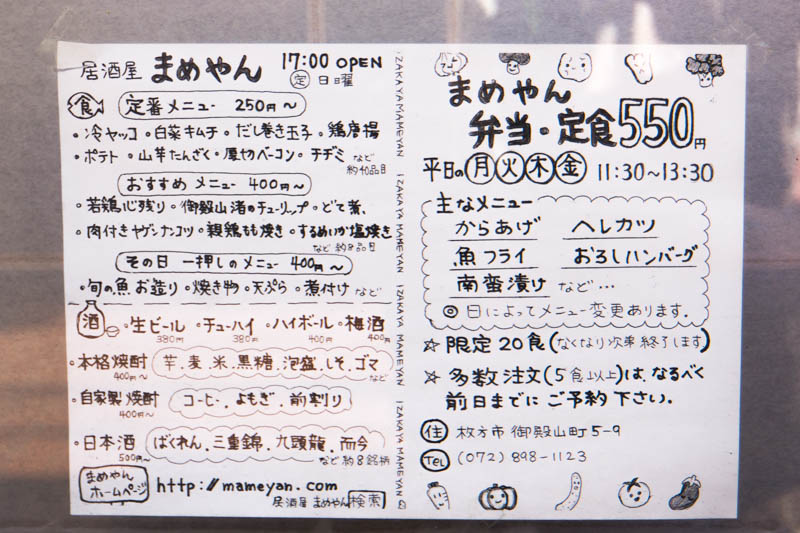 居酒屋 まめやん 17:00 OPEN
定 日曜
食 定番メニュー 250円〜
・冷ヤッコ ・白菜キムチ ・だし巻き玉子 ・鶏唐揚
・ポテト ・山芋たんざく ・厚切りベーコン ・チヂミ など
約40品目
おすすめ メニュー 400円〜
・若鶏心残り ・御殿山渚のチューリップ ・どて煮、
・肉付きヤゲンナンコツ ・親鶏もも焼き ・するめいか塩焼き
など 約8品目
その日 一押しのメニュー 400円〜
・旬の魚 お造り ・焼き物 ・天ぷら ・煮付け など
酒 ・生ビール ・チューハイ ・ハイボール ・梅酒
380円 380円 400円 400円
・本格焼酎 芋、麦、米、黒糖、泡盛、しそ、ゴマ
400円〜 など
・自家製焼酎 コーヒー、よもぎ、前割り
400円〜
・日本酒 ばくれん、三重錦、九頭龍、而今
500円〜 など 約8銘柄
まめやん
ホームページ http://mameyan.com
居酒屋 まめやん 検索
IZAKAYA MAMEYAN IZAKAYA MAMEYAN IZAKAYA MAMEYAN IZAKAYA MAMEYAN
まめやん
弁当・定食550円
平日の月火木金 11:30~13:30
主なメニュー
からあげ ヘレカツ
魚フライ おろしハンバーグ
南蛮漬け など…
◎ 日によってメニュー変更あります.
☆ 限定20食(なくなり次第終了します)
☆ 多数注文(5食以上)は、なるべく
前日までに ご予約 下さい。
住 枚方市 御殿山町 5-9
TEL (072) 898-1123